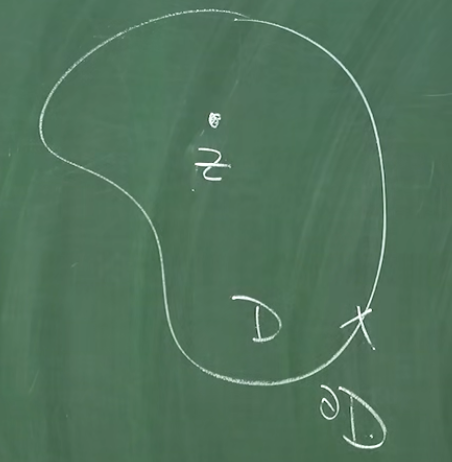 z
D
∂D